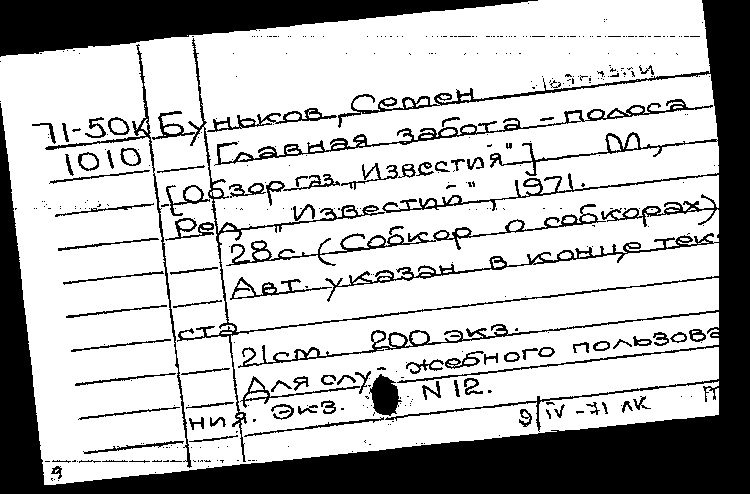 71-50К Буньков, Семен
1010 Главная забота – полоса
[Обзор газ. „Известия"] М.,
Ред. „Известий", 1971.
28 с. (Собкор о собкорах)
Авт. указан в конце тек-
ста
21 см. 200 экз.
Для слу- жебного пользова
ния. Экз. N 12.
9/IV -71 ЛК П
9